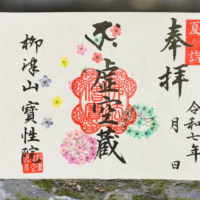 夏詣
奉拝
令和七年
月 日
虚空蔵
柳津山 寳性院